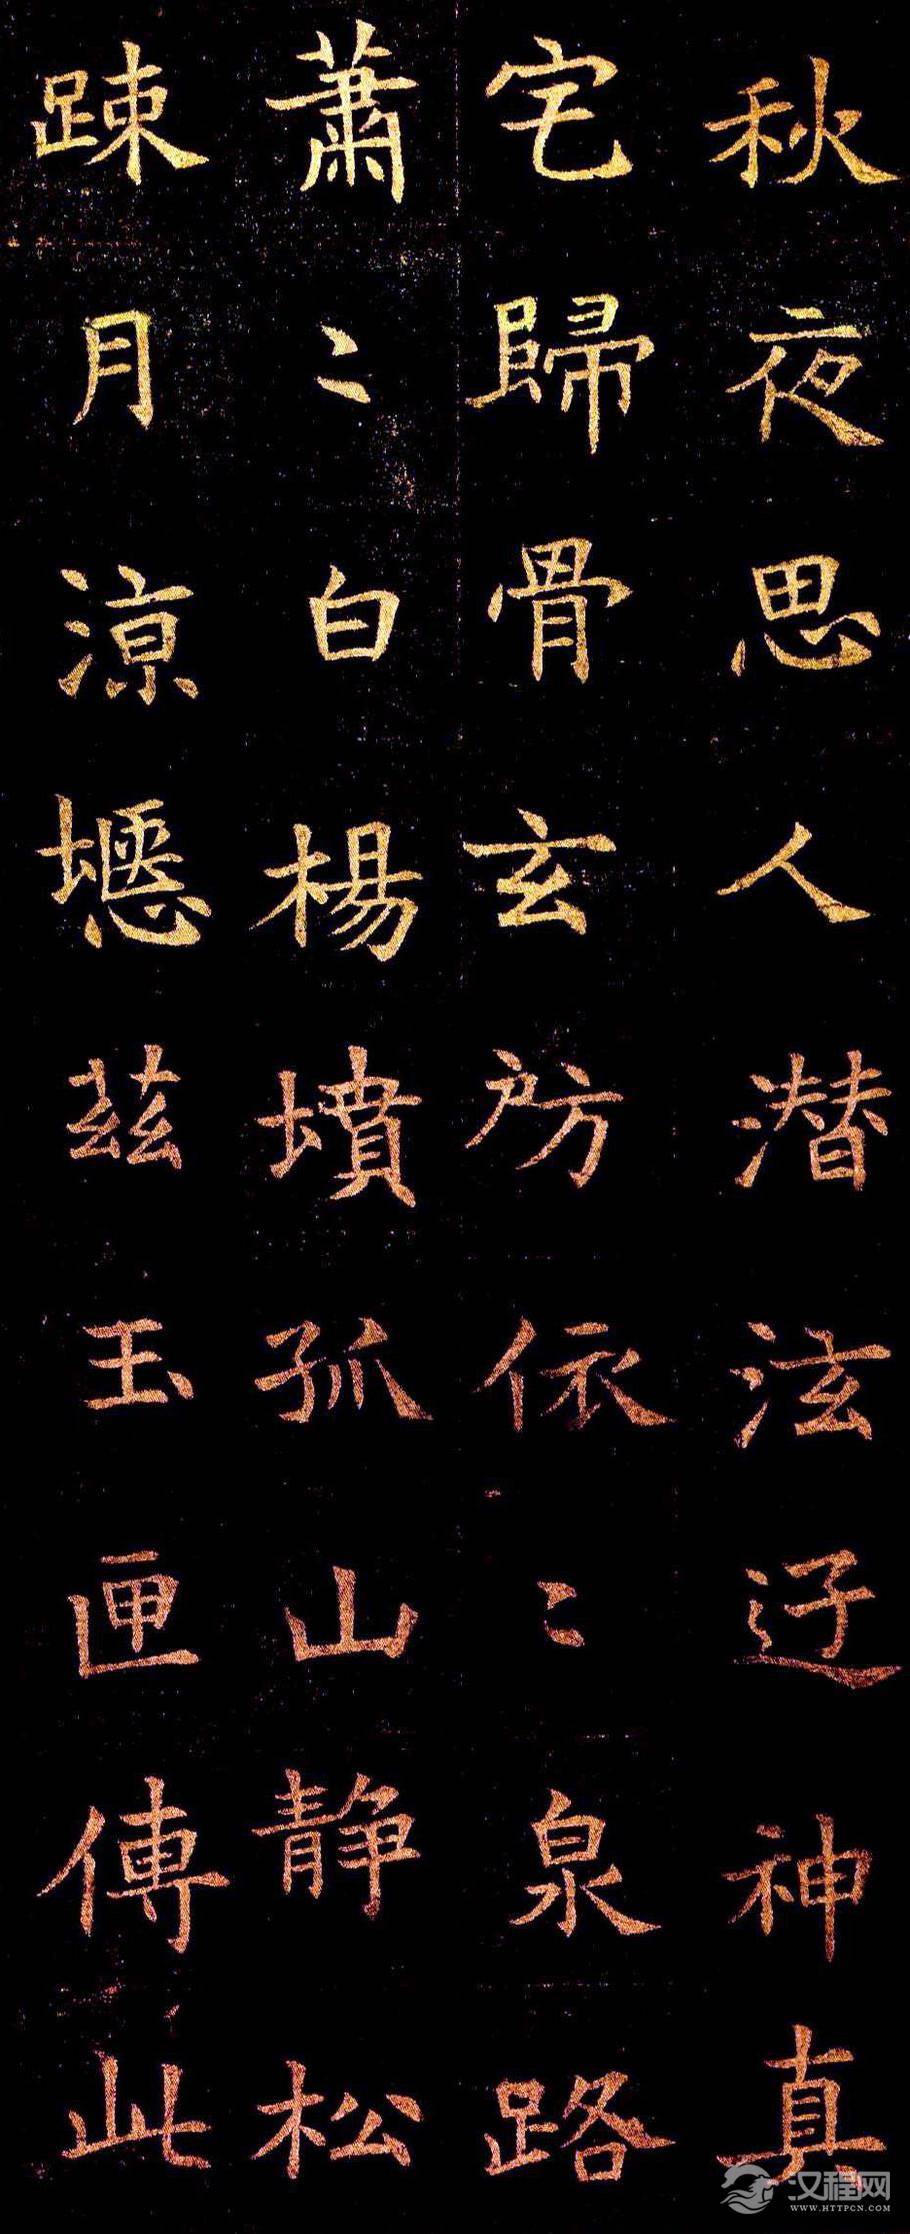 秋夜思人潜泫迂神真
宅歸骨玄房依〻泉路
蕭〻白楊墳孤山静松
踈月涼瘞茲玉匣傳此
汉程网
WWW.HTTPCN.COM